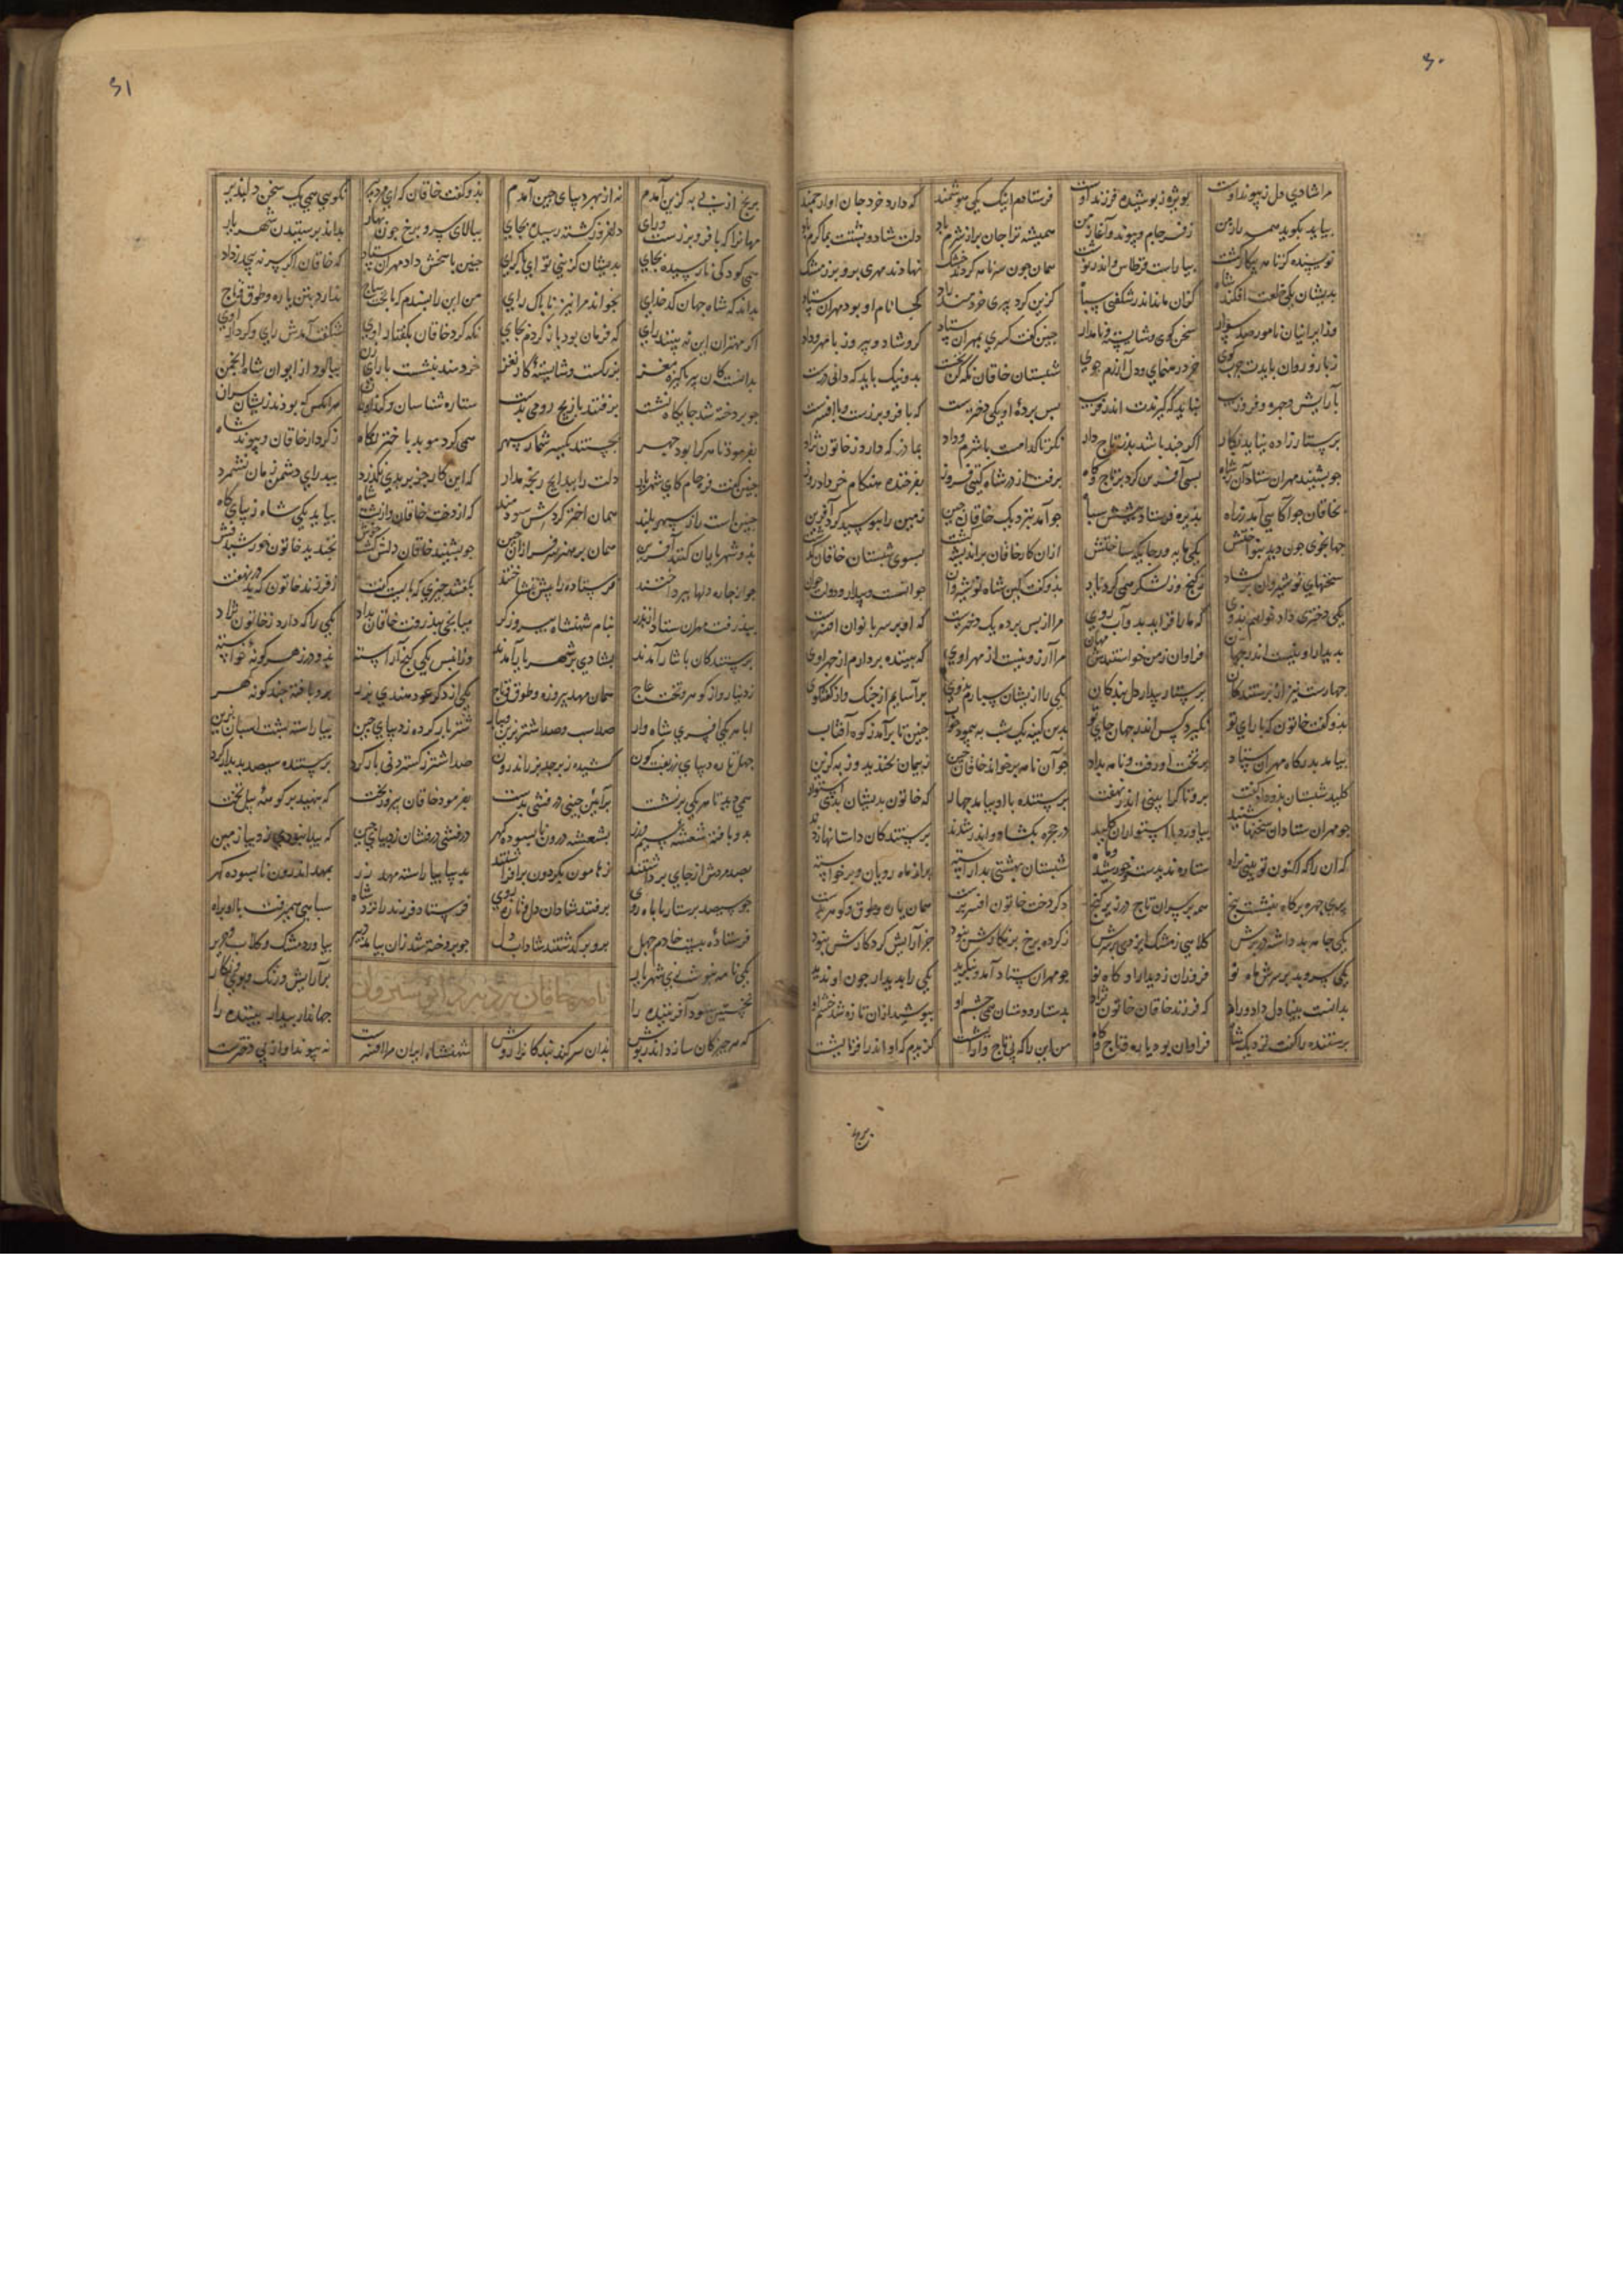 ۶۰
مرا شادی دل ز پیوند اوست بویژه ز پوشیده فرزند اوست فرستادم اینک یکی هوشمند که دارد خرد جان او ارجمند
بیاید بکوید همه راز من ز فرجام و پیوند و آغاز من همیشه ترا جان پر از شرم باد دلت شاد و پشتت بما کرم باد
نویسنده کز نامه بیکار کشت بیاراست قرطاس و اندر نوشت همان چون سر نامه کردند خشک نهادند مهری برو بر ز مشک
بدیشان یکی خلعت افکند شاه کزان ماند اندر شکفتی سپاه کزین کرد پیری خردمند راد کجا نام او بود مهران ستاد
وز ایرانیان نامور صد سوار سخن کوی و شایسته و نامدار چنین کفت کسری بمهران ستاد کرو شاد و پیروز با مهر و داد
زبان و روان بایدت چرب کوی خرد رهنمای و دل آزرم جوی شبستان خاقان نکه کن نخست بد و نیک باید که دانی درست
بآرایش و چهره و فر و زیب نباید که کیرندت اندر فریب پس پرده او یکی دخترست که با فر و برزست و با افسرست
پرستار زاده نیاید بکار اکر چند باشد پدر تاج دار نکر تا کدامست با شرم و داد بمادر که دارد ز خاتون نژاد
چو بشنید مهران ستاد آن ز شاه بسی آفرین کرد بر تاج و کاه برفت از در شاه کیتی فروز بفرخنده هنکام خرداد روز
بخاقان چو آکاهی آمد ز راه پذیره فرستاد چندی سپاه چو آمد بنزدیک خاقان چین زمین را ببوسید و کرد آفرین
جهانجوی چون دید بنواختش یکی مایه ور جایکه ساختش ازان کار خاقان پر اندیشه کشت بسوی شبستان خاتون کذشت
سخنهای نوشیروان برکشاد ز کنج و ز لشکر همی کرد یاد بدو کفت کاین شاه نوشیروان جوانست و بیدار و دولت جوان
یکی دختری داد خواهم بدوی که ما را فزاید بدو آب روی مرا از پس پرده یک دخترست که او بر سر بانوان افسرست
بدیدار او نیست اندر جهان فراوان ز من خواستندش مهان مرا آرزو نیست از مهر اوی که بیننده بردارم از چهر اوی
چهارست نیز از پرستندکان پرستار بیدار دل بندکان یکی را ازیشان سپارم بدوی برآسایم از جنک وز کفت و کوی
بدو کفت خاتون که با رای تو نکیرد کس اندر جهان جای تو برین کینه یک شب به پیمود خواب چنین تا برآمد ز کوه آفتاب
بیامد بدرکاه مهران ستاد بر تخت او رفت و نامه بداد چو آن نامه برخواند خاقان چین ز پیمان بخندید و ز به کزین
کلید شبستان بدو داد کفت برو تا کرا بینی اندر نهفت پرستنده با او بیامد چهار که خاتون بدیشان بدی استوار
چو مهران ستاد آن سخنها شنید بیاورد با استواران کلید در حجره بکشاد و اندر شدند پرستندکان داستانها زدند
که آن را که اکنون تو بینی براه ستاره ندیدست و خورشید و ماه شبستان بهشتی بد آراسته پر از ماه رویان و پر خواسته
پری چهره بر کاه بنشست پنج همه بر سران تاج و در زیر کنج مکر دخت خاتون افسر نداشت همان یاره و طوق و کوهر نداشت
یکی جامه بد داشته در برش کلاهی ز مشک ایزدی بر سرش ز کرده برخ بر نکارش نبود جز آرایش کردکارش نبود
یکی سرو بد بر سرش ماه نو فروزان ز دیدار او کاه نو چو مهران ستاد آمد و بنکرید یکی را بدیدار چون او ندید
بدانست بینا دل داد و راد که فرزند خاقان و خاتون نژاد بدستار و دستان همی چشم او بپوشید ازان تازه شد خشم او
پرستنده را کفت نزدیک شاه فراوان بود یاره و تاج و کاه من این را که بی تاج و آرایشست کزیدم که او اندر افزایشست
برنج
۶۱
برنج از پی به کزین آمدم نه از بهر دیبای چین آمدم بدو کفت خاقان که ای مرد پیر نکویی همی یک سخن دلپذیر
مهانرا که با فر و برزست و رای دلفروز کشته رسیده بجای ببالای سرو و برخ چون بهار بداند پرستیدن شهریار
همی کودکی نارسیده بجای بدیشان کزینی تو ای پاک رای چنین پاسخش داد مهران ستاد که خاقان اکر سر نه پیچد ز داد
بداند که شاه جهان کدخدای بخواند مرا نیز ناپاک رای من این را پسندم که با تخت عاج ندارد بتن یاره و طوق و تاج
اکر مهتران این نه بینند رای که فرمان بود باز کردم بجای نکه کرد خاقان بکفتار اوی شکفت آمدش رای و کردار اوی
بدانست کان پیر پاکیزه مغز بزرکست و شایسته کار نغز خردمند بنشست با رای زن بپالود از ایوان شاه انجمن
چو پردخته شد جایکاه نشست برفتند با زیج رومی بدست ستاره شناسان و کنداوران هر آنکس که بودند زیشان سران
بفرمود تا هر کرا بود مهر بجستند یکسر شمار سپهر همی کرد موبد باختر نکاه ز کردار خاقان و پیوند شاه
چنین کفت فرجام کای شهریار دلت را ببد ایچ رنجه مدار که این کار جز بر بهی نکذرد ببد رای دشمن زمان نشمرد
چنین است راز سپهر بلند همان اختر کردش سودمند که از دخت خاقان و از پشت شاه بیاید یکی شاه زیبای کاه
بدو شهریاران کنند آفرین همان پر هنر سرفرازان چین چو بشنید خاقان دلش کشت خوش بخندید خاتون خورشید فش
چو از چاره دلها بپرداختند فرستاده را پیش بنشاختند بکفتند چیزی که بایست کفت ز فرزند خاتون که بد در نهفت
بپذرفت مهران ستاد از پدر بنام شهنشاه پیروزکر میانجی بپذرفت خاقان بداد یکی را که دارد ز خاتون نژاد
پرستندکان با نثار آمدند بشادی بر شهریار آمدند وزان پس یکی کنج آراسته بدو در ز هر کونه خواسته
ز دینار و از کوهر و تخت عاج همان مهد پیروزه و طوق و تاج یکی از دکر عود هندی بزر برو بافته چند کونه کهر
ابا هر یکی افسری شاه وار صد اسب و صد اشتر بزین و ببار شتر بار کرده ز دیبای چین بیاراسته پشت اسبان بزین
چهل تا ز دیبای زربفت کون کشیده زبرجد بزر اندرون صد اشتر ز کستردنی بار کرد پرستنده سیصد پدیدار کرد
همی بود تا هر یکی بر نشست بر آیین چینی درفشی بدست بفرمود خاقان پیروز بخت که بنهید بر کوهه پیل تخت
بدو بافته شفشه سیم و زر بشفشه درون نابسوده کهر درفشی درفشان ز دیبای چین که پیدا نبودی ز دیبا زمین
بصد مردش از جای برداشتند ز هامون بکردون برافراشتند بدیبا بیاراسته مهد زر بمهد اندرون نابسوده کهر
چو سیصد پرستار با ماه روی برفتند شادان دل و راه جوی فرستاد فرزند را نزد شاه سپاهی همی رفت با او براه
فرستاده بیست خادم چهل برو بر کذشتند شادان بدل چو پردخته شد زان بیامد دبیر بیاورد مشک و کلاب و حریر
یکی نامه بنوشت نزد شهریار پر آرایش و رنک و بوی و نکار
نامه خاقان نزدیک نوشیروان
نخستین ستود آفریننده را جهاندار بیدار بیننده را
که هر چیز کان سازد اندر بوش بدان سو کند بندکانرا روش شهنشاه ایران مرا افسرست نه پیوند او از پی دخترست